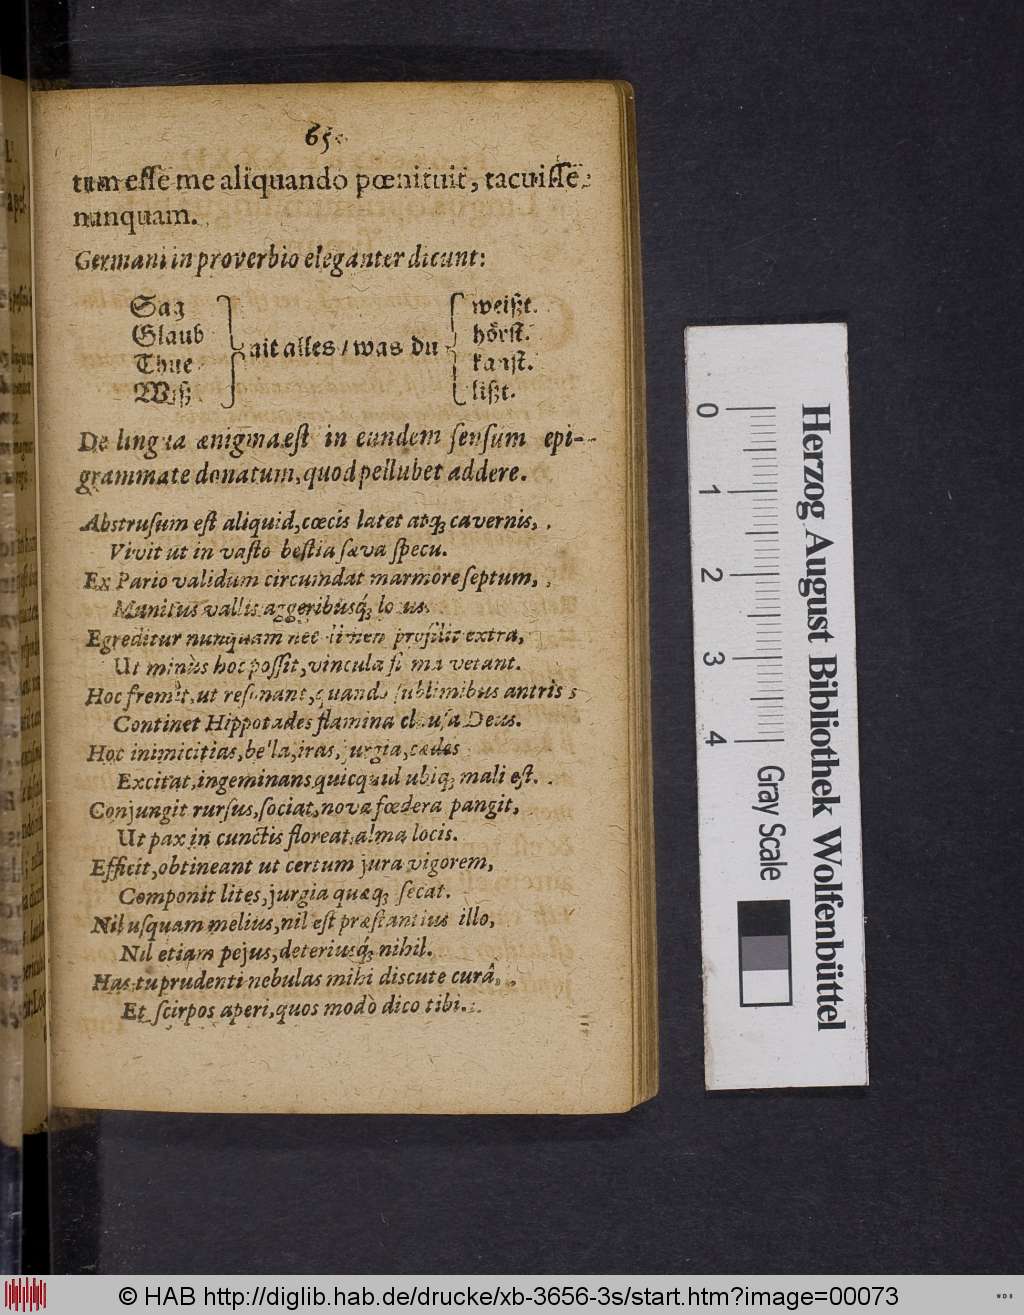 65.
tum esse me aliquando pœnituit, tacuisse
nunquam.
Germani in proverbio eleganter dicunt:
Sag
Glaub
Thue
Wiß
nit alles / was du
weißt.
hörst.
kanst.
lißt.
De lingua ænigma est in eundem sensum epi-
grammate donatum, quod perlubet addere.
Abstrusum est aliquid, cœcis latet atq; cavernis,
Vivit ut in vasto bestia sæva specu.
Ex Pario validum circumdat marmore septum,
Munitus vallis aggeribusq́; locus.
Egreditur nunquam nec limen prosilit extra,
Ut minùs hoc possit, vincula firma vetant.
Hoc fremit, ut resonant, quando sublimibus antris
Continet Hippotades flamina clausa Deus.
Hoc inimicitias, bella, iras, jurgia, cædes
Excitat, ingeminans quicquid ubiq; mali est.
Conjungit rursus, sociat, nova fœdera pangit,
Ut pax in cunctis floreat alma locis.
Efficit, obtineant ut certum jura vigorem,
Componit lites, jurgia quæq; secat.
Nil usquam melius, nil est præstantius illo,
Nil etiam pejus, deteriusq́; nihil.
Has tu prudenti nebulas mihi discute curâ,
Et scirpos aperi, quos modò dico tibi.
Herzog August Bibliothek Wolfenbüttel
0 1 2 3 4
Gray Scale
© HAB http://diglib.hab.de/drucke/xb-3656-3s/start.htm?image=00073